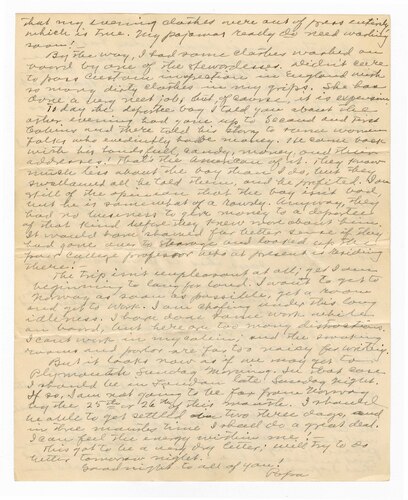 that my evening clothes were out of press entirely
which is true. My pajamas really do need washing
soon!
By the way, I had some clothes washed on
board by one of the stewardesses. Didn't care
to pass Custom inspection in England with
so many dirty clothes in my grips. She has
done a very neat job; but, of course, it is expensive
To-day the deportee boy I told you about the
other evening had gone up to second and first
Cabins and there told his story to some women
folks who evidently had money. He came back
with his hands full of candy, money and their
addresses! That's the American of it. They know
much less about the boy than I do, but they
swallowed all he told them, and he profited. I am
still of the opinion that the boy isn't bad
but he is somewhat of a rowdy. Anyway, they
had no business to give money to a deportee
of that kind when they knew nothing about him.
It would have showed far better sense if they
had gone down to steerage and looked up the
poor College professor who at present is residing
there.
The trip isn't unpleasant at all; yet I am
beginning to long for land. I want to get to
Norway as soon as possible, get a room
and get to work. I am chafing under this long
idleness. I have done some work while
on board, but there are too many distractions.
I can't work in my cabin; and the smoking
rooms and parlor are far too noisy for writing.
But it looks now as if we may get to
Plymouth Sunday Morning. In that case
I should be in London late Sunday night.
If so, I am not going to be far from Norway
by the 25th or 26th of this month. I should
be able to get settled in two three days, and
in three months time I should do a great deal.
I can feel the energy within me!
This got to be a very dry letter; will try to do
better tomorrow night.
Good night to all of you!
Papa